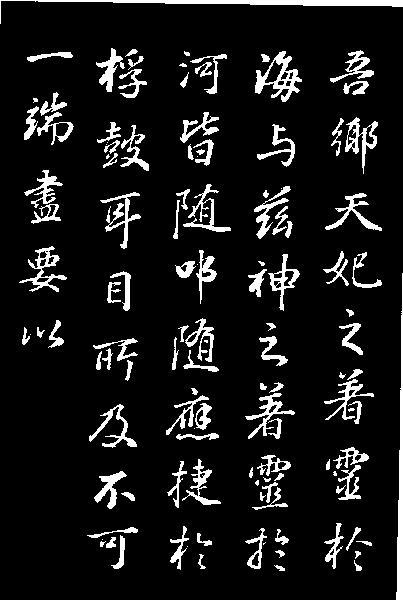 吾鄉天妃之著靈於
海与茲神之著靈於
河皆随叩随應捷於
桴鼓耳目所及不可
一端盡要以